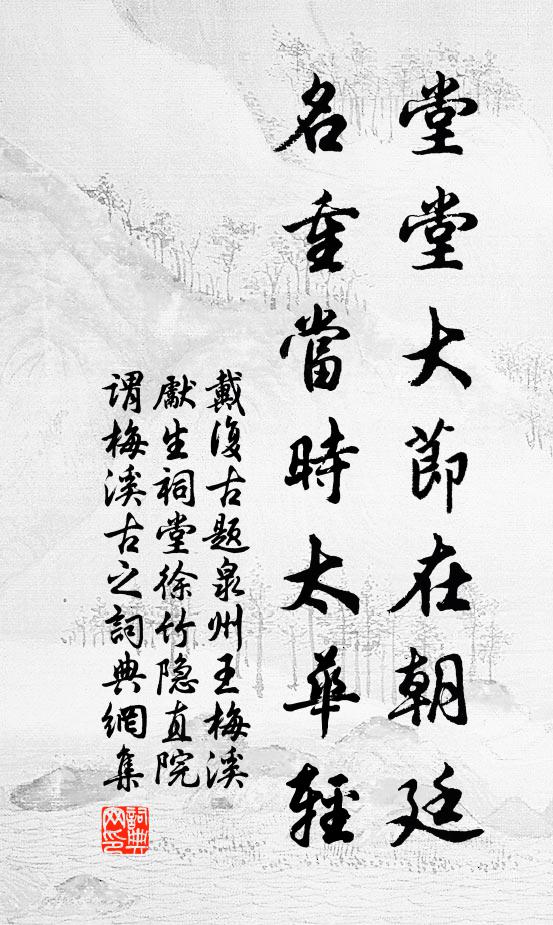 堂堂大節在朝廷
名重當時太華輕
戴復古題泉州王梅溪
獻生祠堂徐竹隐直院
谓梅溪古之詞典網集
詞典網印